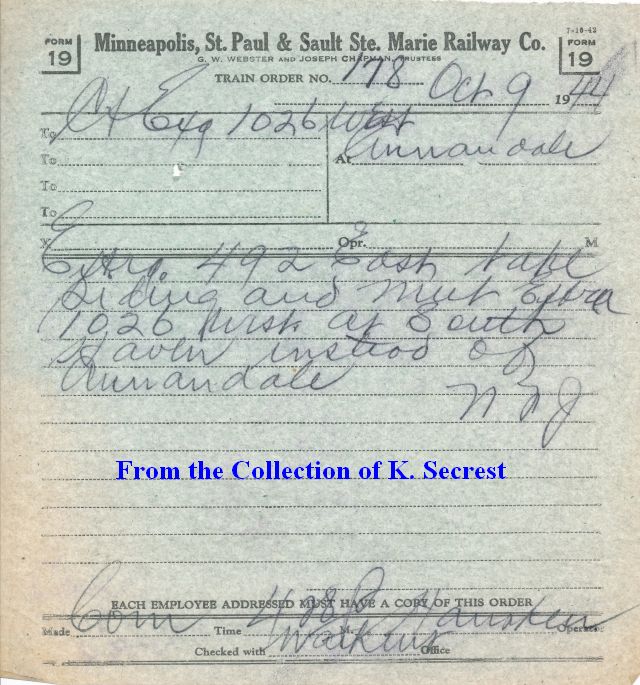 7-10-42
FORM 19
Minneapolis, St. Paul & Sault Ste. Marie Railway Co.
FORM 19
G. W. WEBSTER AND JOSEPH CHAPMAN, TRUSTEES
TRAIN ORDER NO. 178 Oct 9 1944
To Exa 1026 West
At Annandale
To
To
To
X Opr. M
Extra 492 East take
siding and meet Extra
1026 West at South
Haven instead of
Annandale
From the Collection of K. Secrest
EACH EMPLOYEE ADDRESSED MUST HAVE A COPY OF THIS ORDER
Made Com Time 428 P M. Operator
Checked with Watkins Office